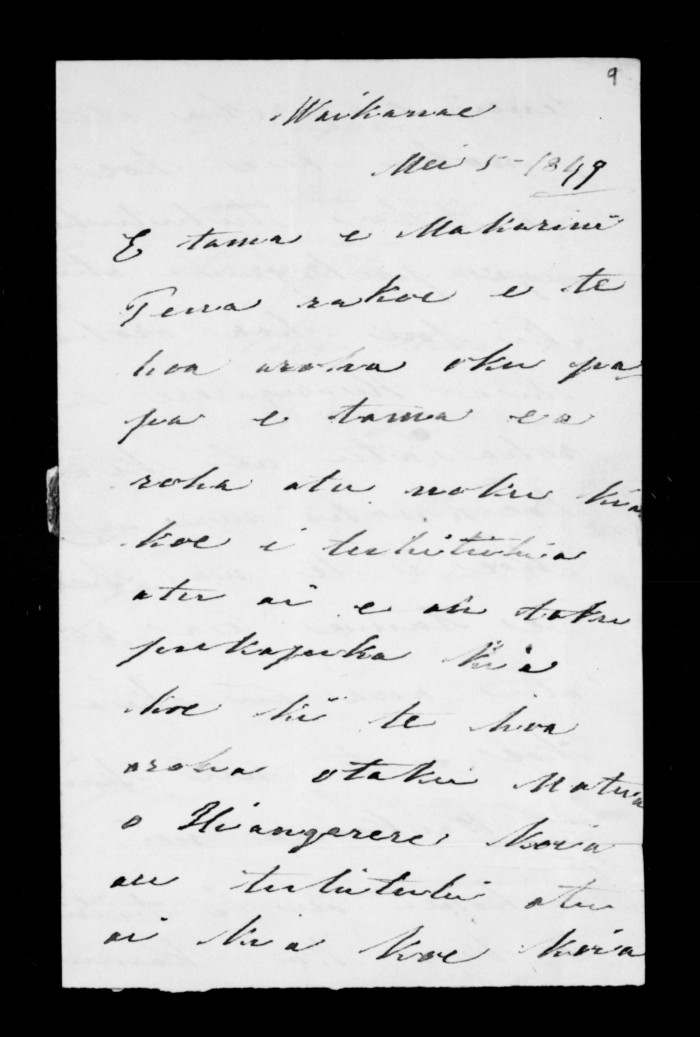 9
Waikanae
Mei 5 - 1849
E tama e Makarini
Tena rakoe e te
hoa aroha oku pa
pa e tama ea
roha atu noku kia
koe i tuhituhia
atu ai e au taku
pukapuka kia
koe ki te hoa
aroha otaku Matua
o Hiangarere Koia
au tuhituhi atu
ai kia koe koia